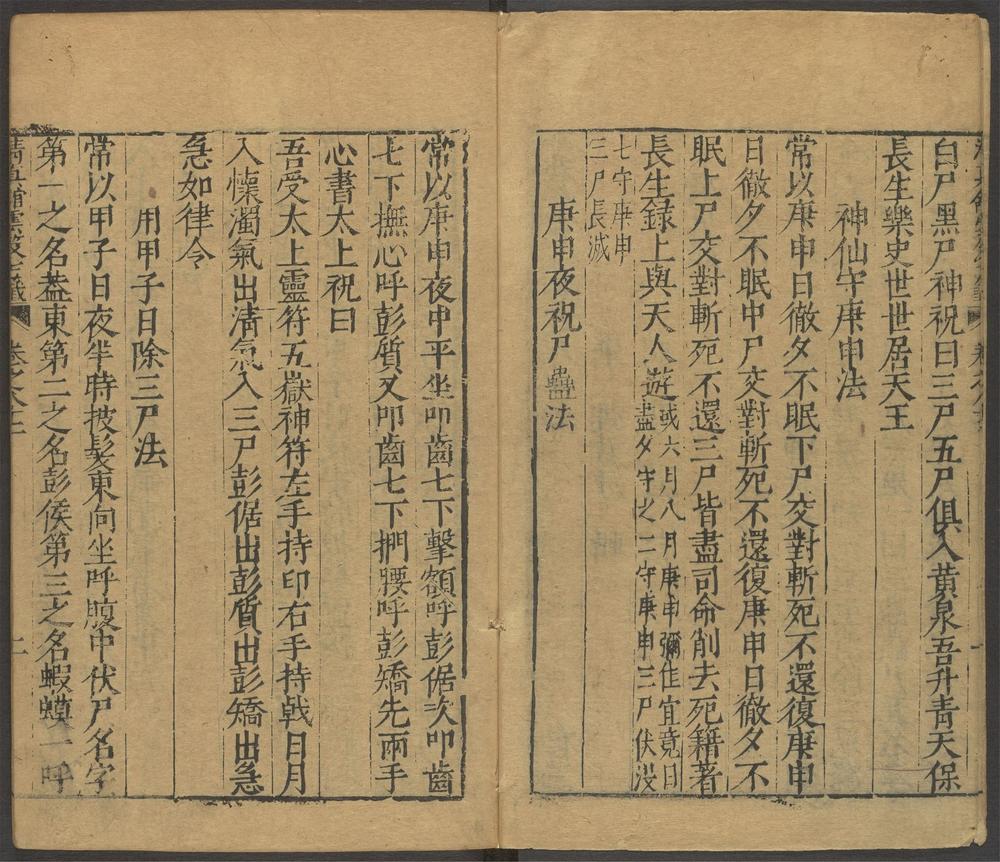 白尸黑尸神祝曰三尸五尸俱入黄泉吾升青天保
長生樂史世世居天王
神仙守庚申法
常以庚申日徹夕不眠下尸交對斬死不還復庚申
日徹夕不眠中尸交對斬死不還復庚申日徹夕不
眠上尸交對斬死不還三尸皆盡司命削去死籍著
長生録上與天人遊或六月八月庚申彌佳宜竟日
盡夕守之二守庚申三尸伏没
七守庚申
三尸長滅
庚申夜祝尸蠱法
常以庚申夜中平坐叩齒七下擊額呼彭倨次叩齒
七下撫心呼彭質又叩齒七下捫腰呼彭矯先兩手
心書太上祝曰
吾受太上靈符五嶽神符左手持印右手持戟日月
入懷濁氣出淸氣入三尸彭倨出彭質出彭矯出急
急如律令
用甲子日除三尸法
常以甲子日夜半時披髮東向坐呼腹中伏尸名字
第一之名蓋東第二之名彭侯第三之名蝦蟆一呼